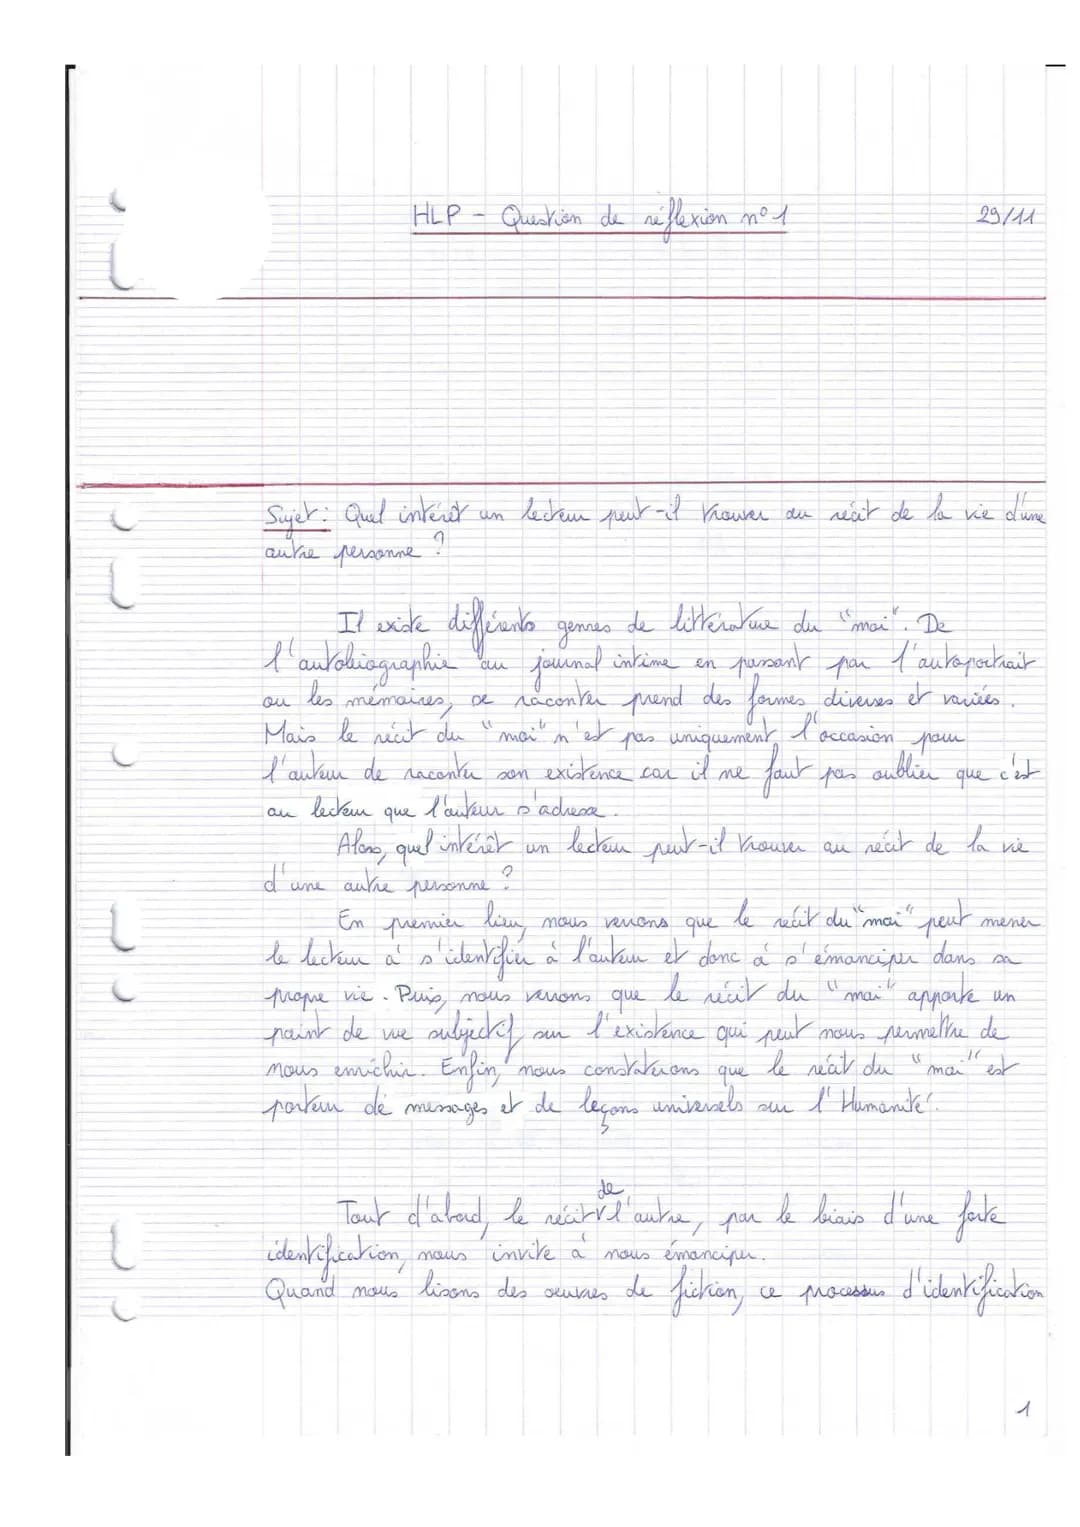 HLP - Question de réflexion n°1
29/11
Sujet : Quel intérêt un lecteur peut-il trouver au récit de la vie d'une
autre personne ?
Il existe différents genres de littérature du "moi". De
l'autobiographie au journal intime en passant par l'autoportrait
ou les mémoires, se raconter prend des formes diverses et variées.
Mais le récit du "moi" n'est pas uniquement l'occasion pour
l'auteur de raconter son existence car il ne faut pas oublier que c'est
au lecteur que l'auteur s'adresse.
Alors, quel intérêt un lecteur peut-il trouver au récit de la vie
d'une autre personne ?
En premier lieu, nous verrons que le récit du "moi" peut mener
le lecteur à s'identifier à l'auteur et donc à s'émanciper dans sa
propre vie. Puis, nous verrons que le récit du "moi" apporte un
point de vue subjectif sur l'existence qui peut nous permettre de
nous enrichir. Enfin, nous constaterons que le récit du "moi" est
porteur de messages et de leçons universels sur l'Humanité.
Tout d'abord, le récit de l'autre, par le biais d'une forte
identification, nous invite à nous émanciper.
Quand nous lisons des oeuvres de fiction, ce processus d'identification
1